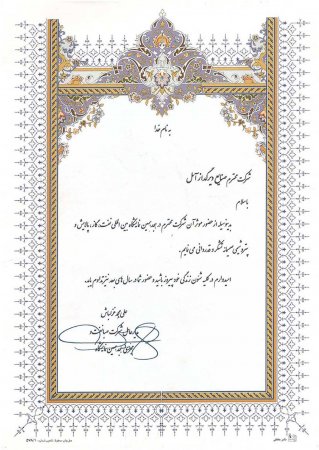 به نام خدا
شرکت محترم صنایع دیرگداز آمل
با سلام
بدینوسیله از حضور موثر آن شرکت محترم در هجدهمین نمایشگاه بین المللی نفت، گاز، پالایش و
پتروشیمی صمیمانه تشکر و قدردانی می نمایم.
امیدوارم در کلیه شئون زندگی خود پیروز باشید و حضور شما در سال های بعد نیز تداوم یابد.
علی محمد
مدیرعامل شرکت
هجدهمین نمایشگاه